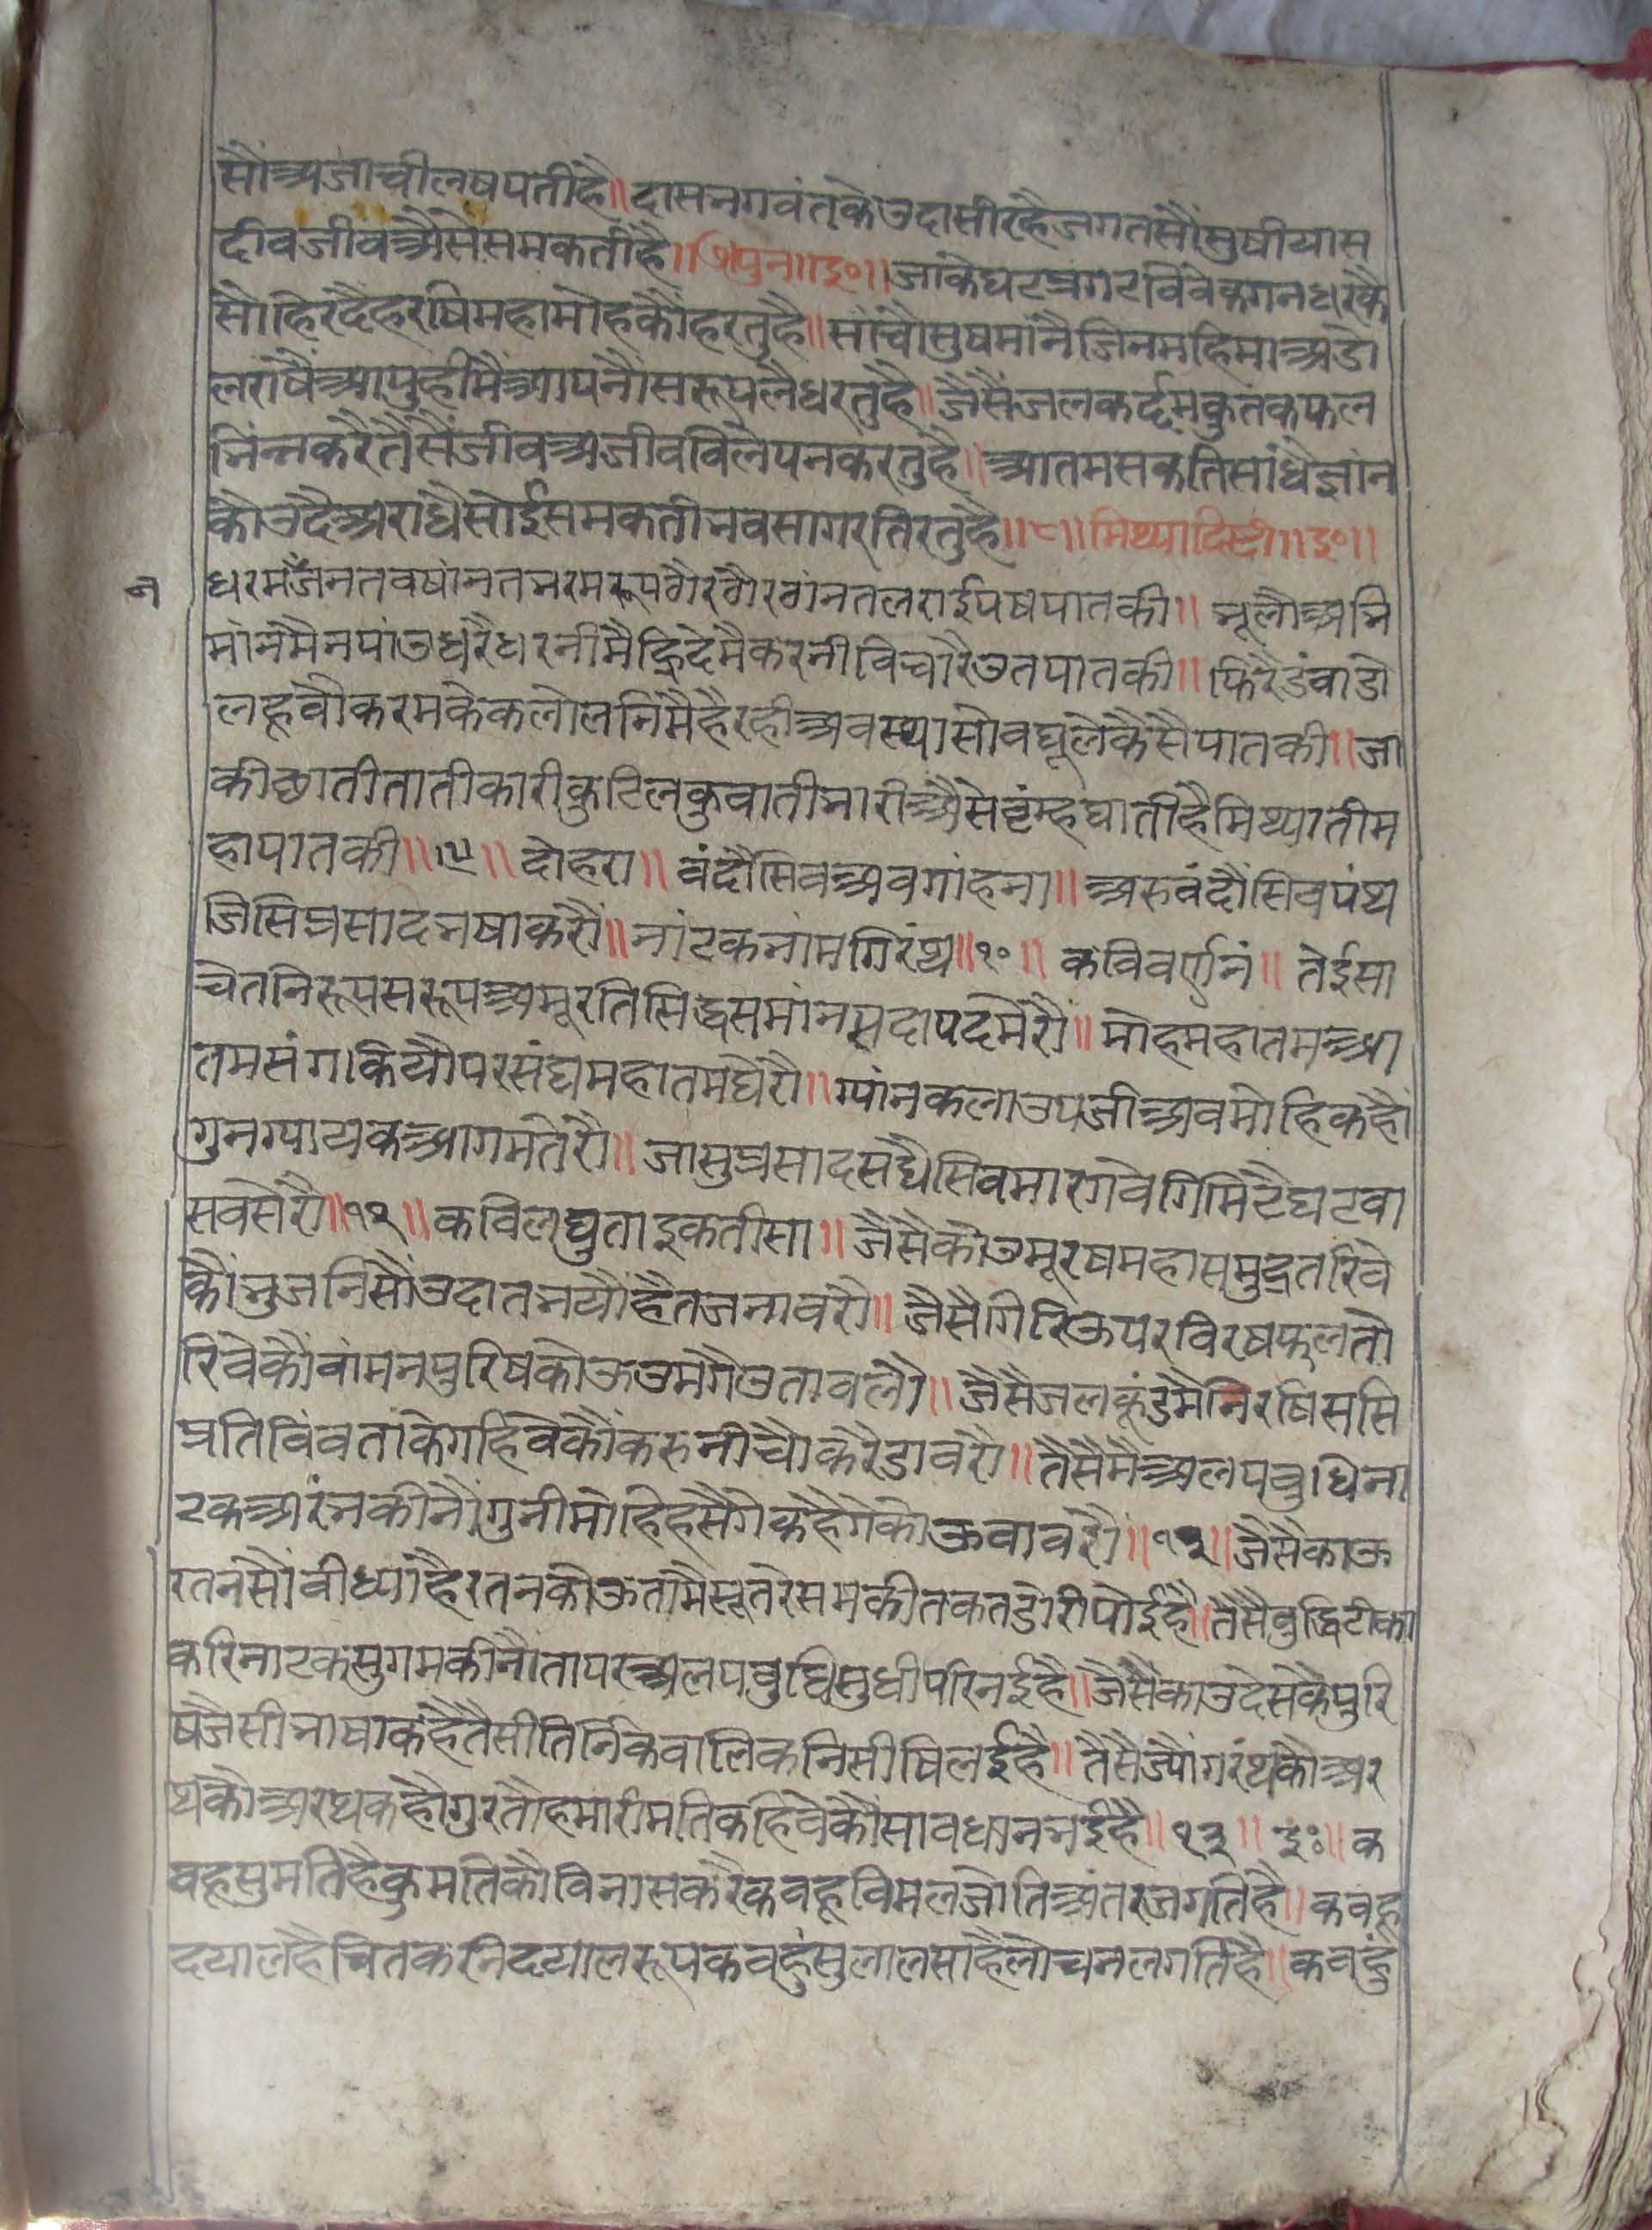 सौंअजाचीलषपतीहै॥ दासभगवंतकेउदासीरहैजगतसौंसुषीयास
दीवजीवअैसेसमकतीहै॥७॥पुनः॥इ०॥ जाकेघटप्रगटविवेकगनधरकै
सोहिरदैहरषिमहामोहकौंहरतुहै॥ सांचौसुषमांनैजिनमहिमाअडो
लराषैआपुहीमैआपनौसरूपलैधरतुहै॥ जैसैंजलकर्दमकुतकफल
भिंनकरैतैसैंजीवअजीवविलेपनकरतुहै॥ आतमसकतिसांधैज्ञान
कौउदैअराधैसोईसमकतीभवसागरतिरतुहै॥८॥मिथ्यादिस्टी॥इ०॥
धरमनजांनतवषांनतभरमरूपठौरठौरठांनतलराईपषपातकी॥ भूलौअभि
मांनमैनपांउधरैधरनीमैह्रिदेमैकरनीविचारैउतपातकी॥ फिरैडंवाडो
लह्वौकरमकेकलोलनिमैहैरहीअवस्थासोवघूलेकैसैपातकी॥ जा
कीछातीतातीकारीकुटिलकुवातीभारीअैसेब्रंम्हघातीहैमिथ्यातीम
हापातकी॥९॥ दोहरा॥ वंदौंसिवअवगांहना॥ अरुवंदौंसिवपंथ
जिसिप्रसादभषाकरौं॥ नांटकनांमगिरंथ॥१०॥ कविवर्णनं॥ तेईसा
चेतनिरूपसरूपअमूरतिसिद्धसमांनसदापदमेरौ॥ मोहमहातमआ
तमसंगकियौपरसंघमहातमघेरौ॥ ग्यांनकलाउपजीअवमोहिकहौं
गुनग्याटकआगमतेरौ॥ जासुप्रसादसधैसिवमारगवेगिमिटैघटवा
सवसेरौ॥११॥ कविलघुताइकतीसा॥ जैसैकोउमूरषमहासमुद्रतरिवे
कौंभुजनिसौंउदातभयौहैतजनावरौ॥ जैसैगिरिऊपरविरषफलतो
रिवेकौंवांमनपुरिषकोऊउमगैउतावलौ॥ जैसैजलकूंडमैनिरषिससि
प्रतिविंवतांकेगहिवेकौंकरनीचौकरैडावरौ॥ तैसैमैअलपवुधिना
टकआरंभकीनौंगुनीमोहिहसैगेकहैगेकोऊवावरौ॥१२॥ जैसैकाऊ
रतनसौंवीध्यौहैरतनकोऊतामैसूतरेसमकीतकतडोरीपोईहै॥तैसैवुद्धिटीका
करिनाटकसुगमकीनौंतापरअलपवुधिसुधीपरिनईहै॥ जैसैकाउदेसकेपुरि
षजैसीभाषाकहैतैसीतिनिकेवालिकनिसीषिलईहै॥ तैसैज्यौंगरंथकौअर
थकौअरथकहौगुरतौहमारीमतिकहिवेकौंसावधानभईहै॥१३॥ इ०॥ क
वहूसुमतिहैकुमतिकौविनासकरैकवहूविमलजोतिअंतरजगतिहै॥ कवहू
दयालहैचितकरनिदयालरूपकवहुंसुलालसाहैलोचनलगतिहै॥ कवहुं